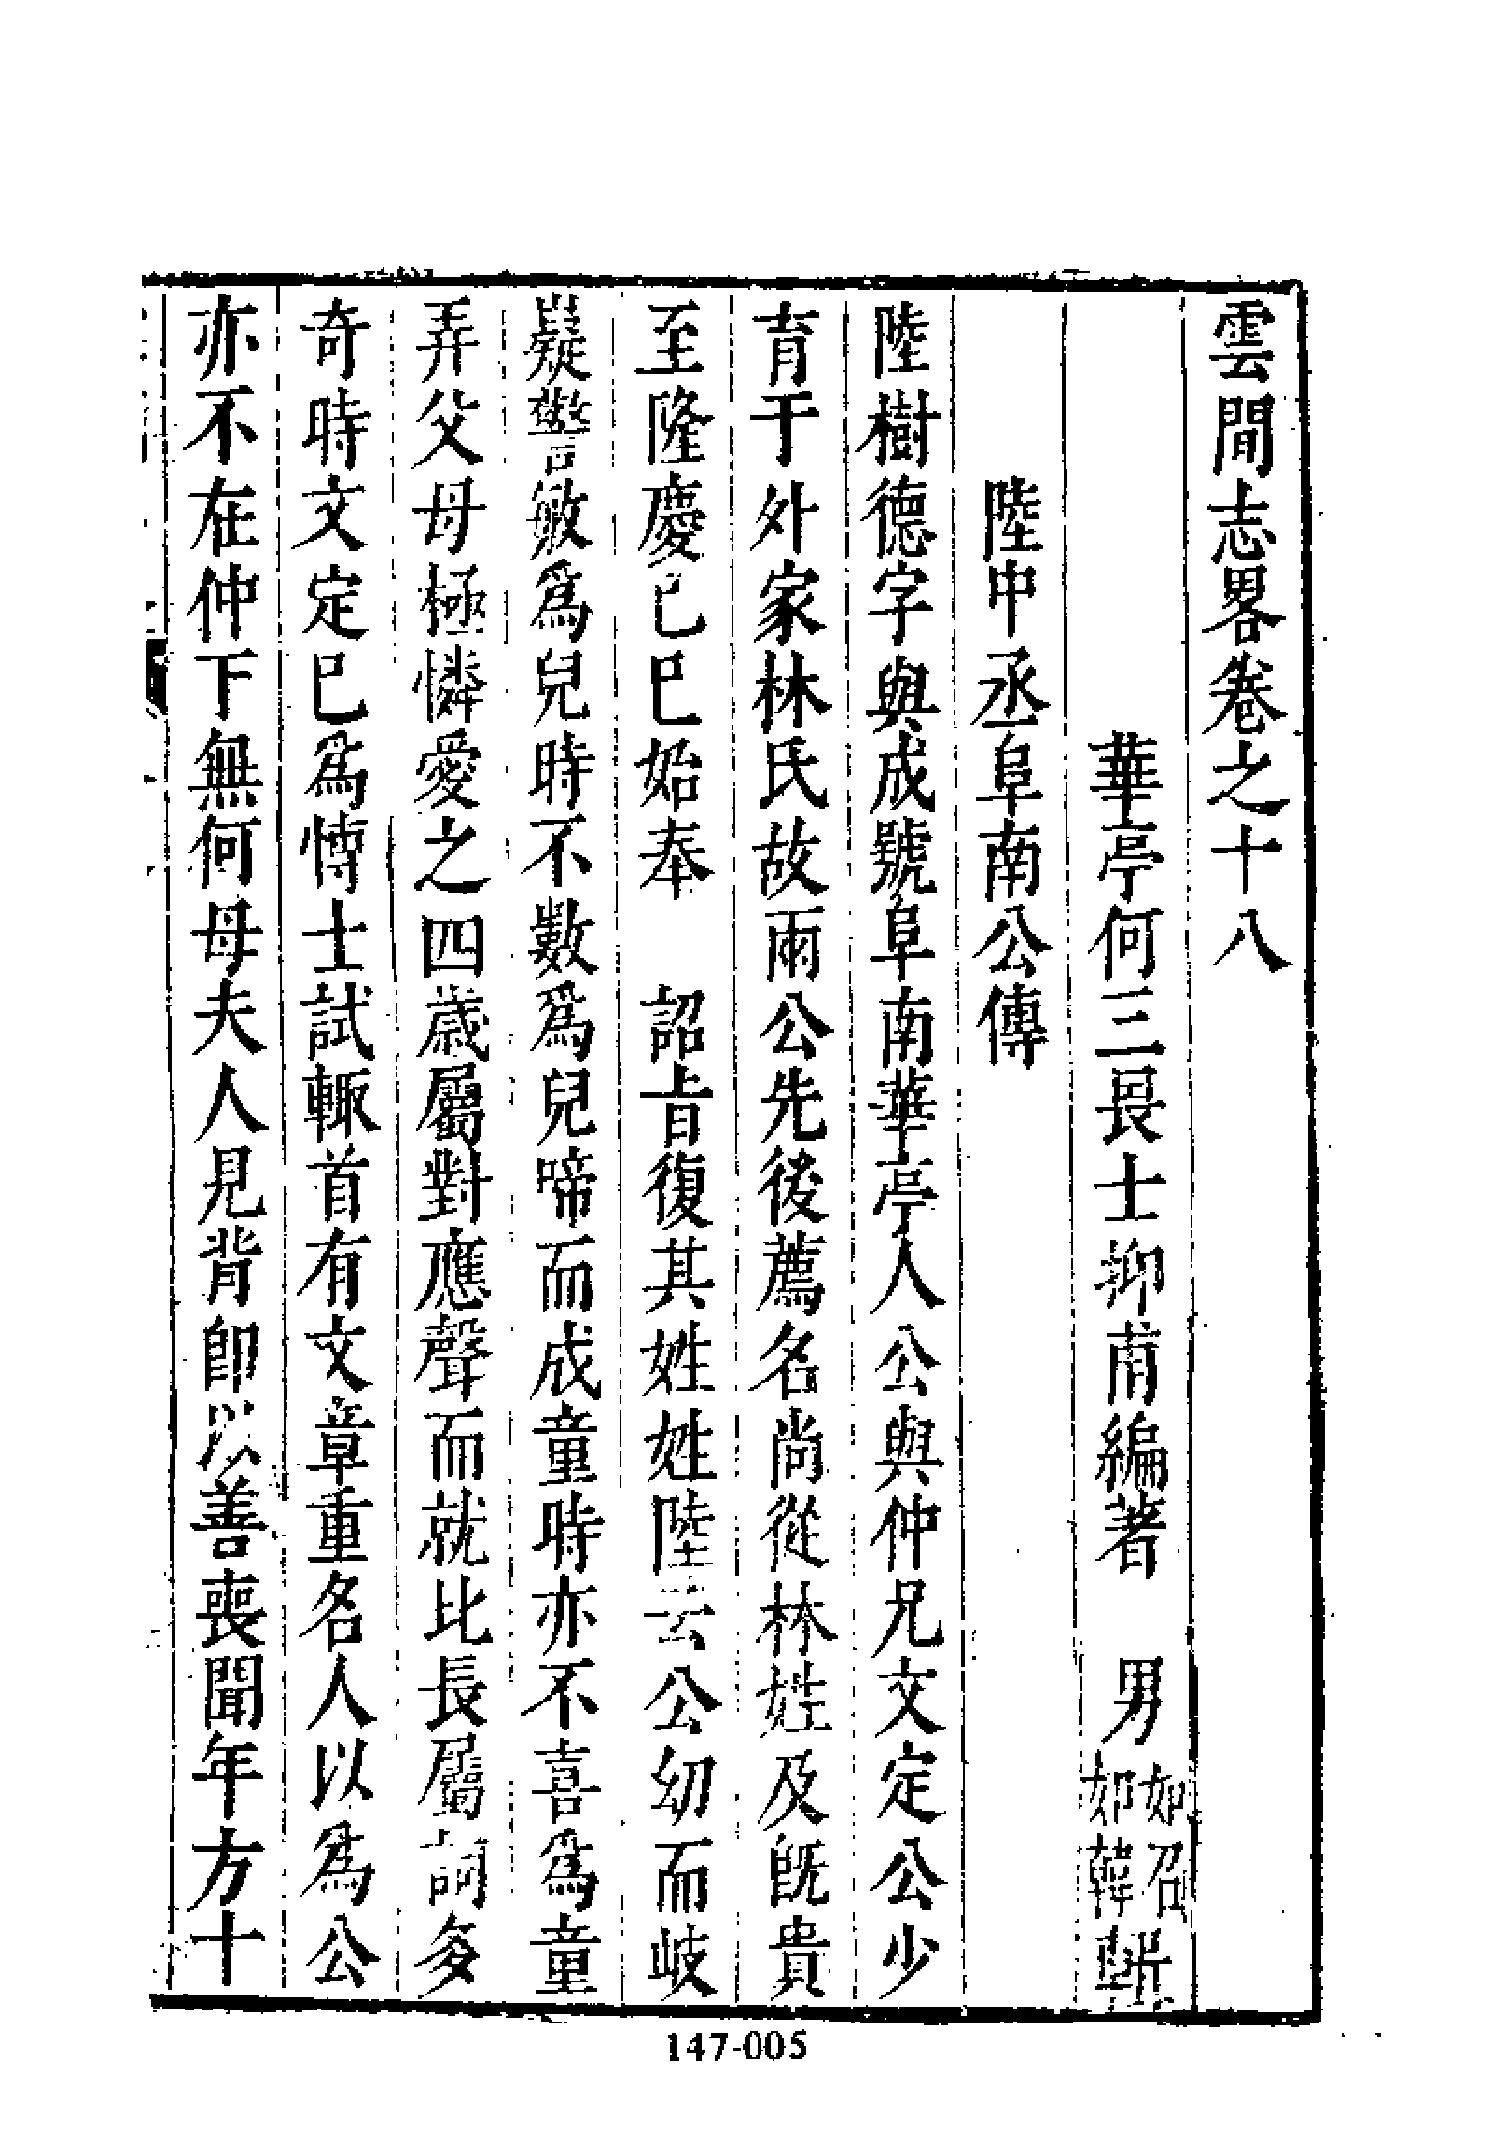 雲間志畧卷之十八
華亭何三畏士抑甫編著 男如召如韓
陸中丞阜南公傳
陸樹德字與成號阜南華亭人公與仲兄文定公少
育于外家林氏故兩公先後薦名尚從林姓及旣貴
至隆慶己巳始奉 詔旨復其姓姓陸云公幼而岐
嶷警敏爲兒時不數爲兒啼而成童時亦不喜爲童
弄父母極憐愛之四歲屬對應聲而就比長屬詞多
奇時文定已爲博士試輒首有文章重名人以爲公
亦不在仲下無何母夫人見背卽以善喪聞年方十
147-005